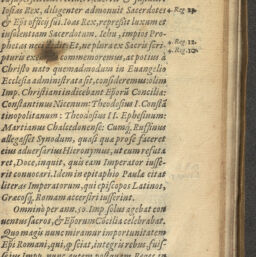 Iosias Rex, diligenter admonuit Sacerdotes
& Epi officij sui. Ioas Rex, repressit luxum et
insolentiam Sacerdotum. Iehu, impios Pro-
phetas neci dedit. Et, ne plura ex Sacris scri-
pturis exempla commemoremus, at potius à
Christo nato quemadmodum in Euangelio
Ecclesia administrata sit, consideremus: olim
Imp. Christiani indicebant Eporū Concilia:
Constantinus Nicenum: Theodosius I. Constā
tinopolitanum: Theodosius II. Ephesinum:
Martianus Chalcedonense: Cumq́; Ruffinus
allegasset Synodum, quasi qua pro se faceret
eius aduersarius Hieronymus, ut eum refuta
ret, Doce, inquit, quis eam Imperator iusse-
rit conuocari. Idem in epitaphio Paulæ citat
literas Imperatorum, qui episcopos Latinos,
Græcosq́; Romam accersiri iusserint.
Omninò per ann. 50. Imp. solus agebat con
uentus sacros, & Eporum Cōcilia celebrabat.
Quo magis nunc miramur importunitatem
Epi Romani, qui,
4. Reg. 12.
4. Reg. 10.